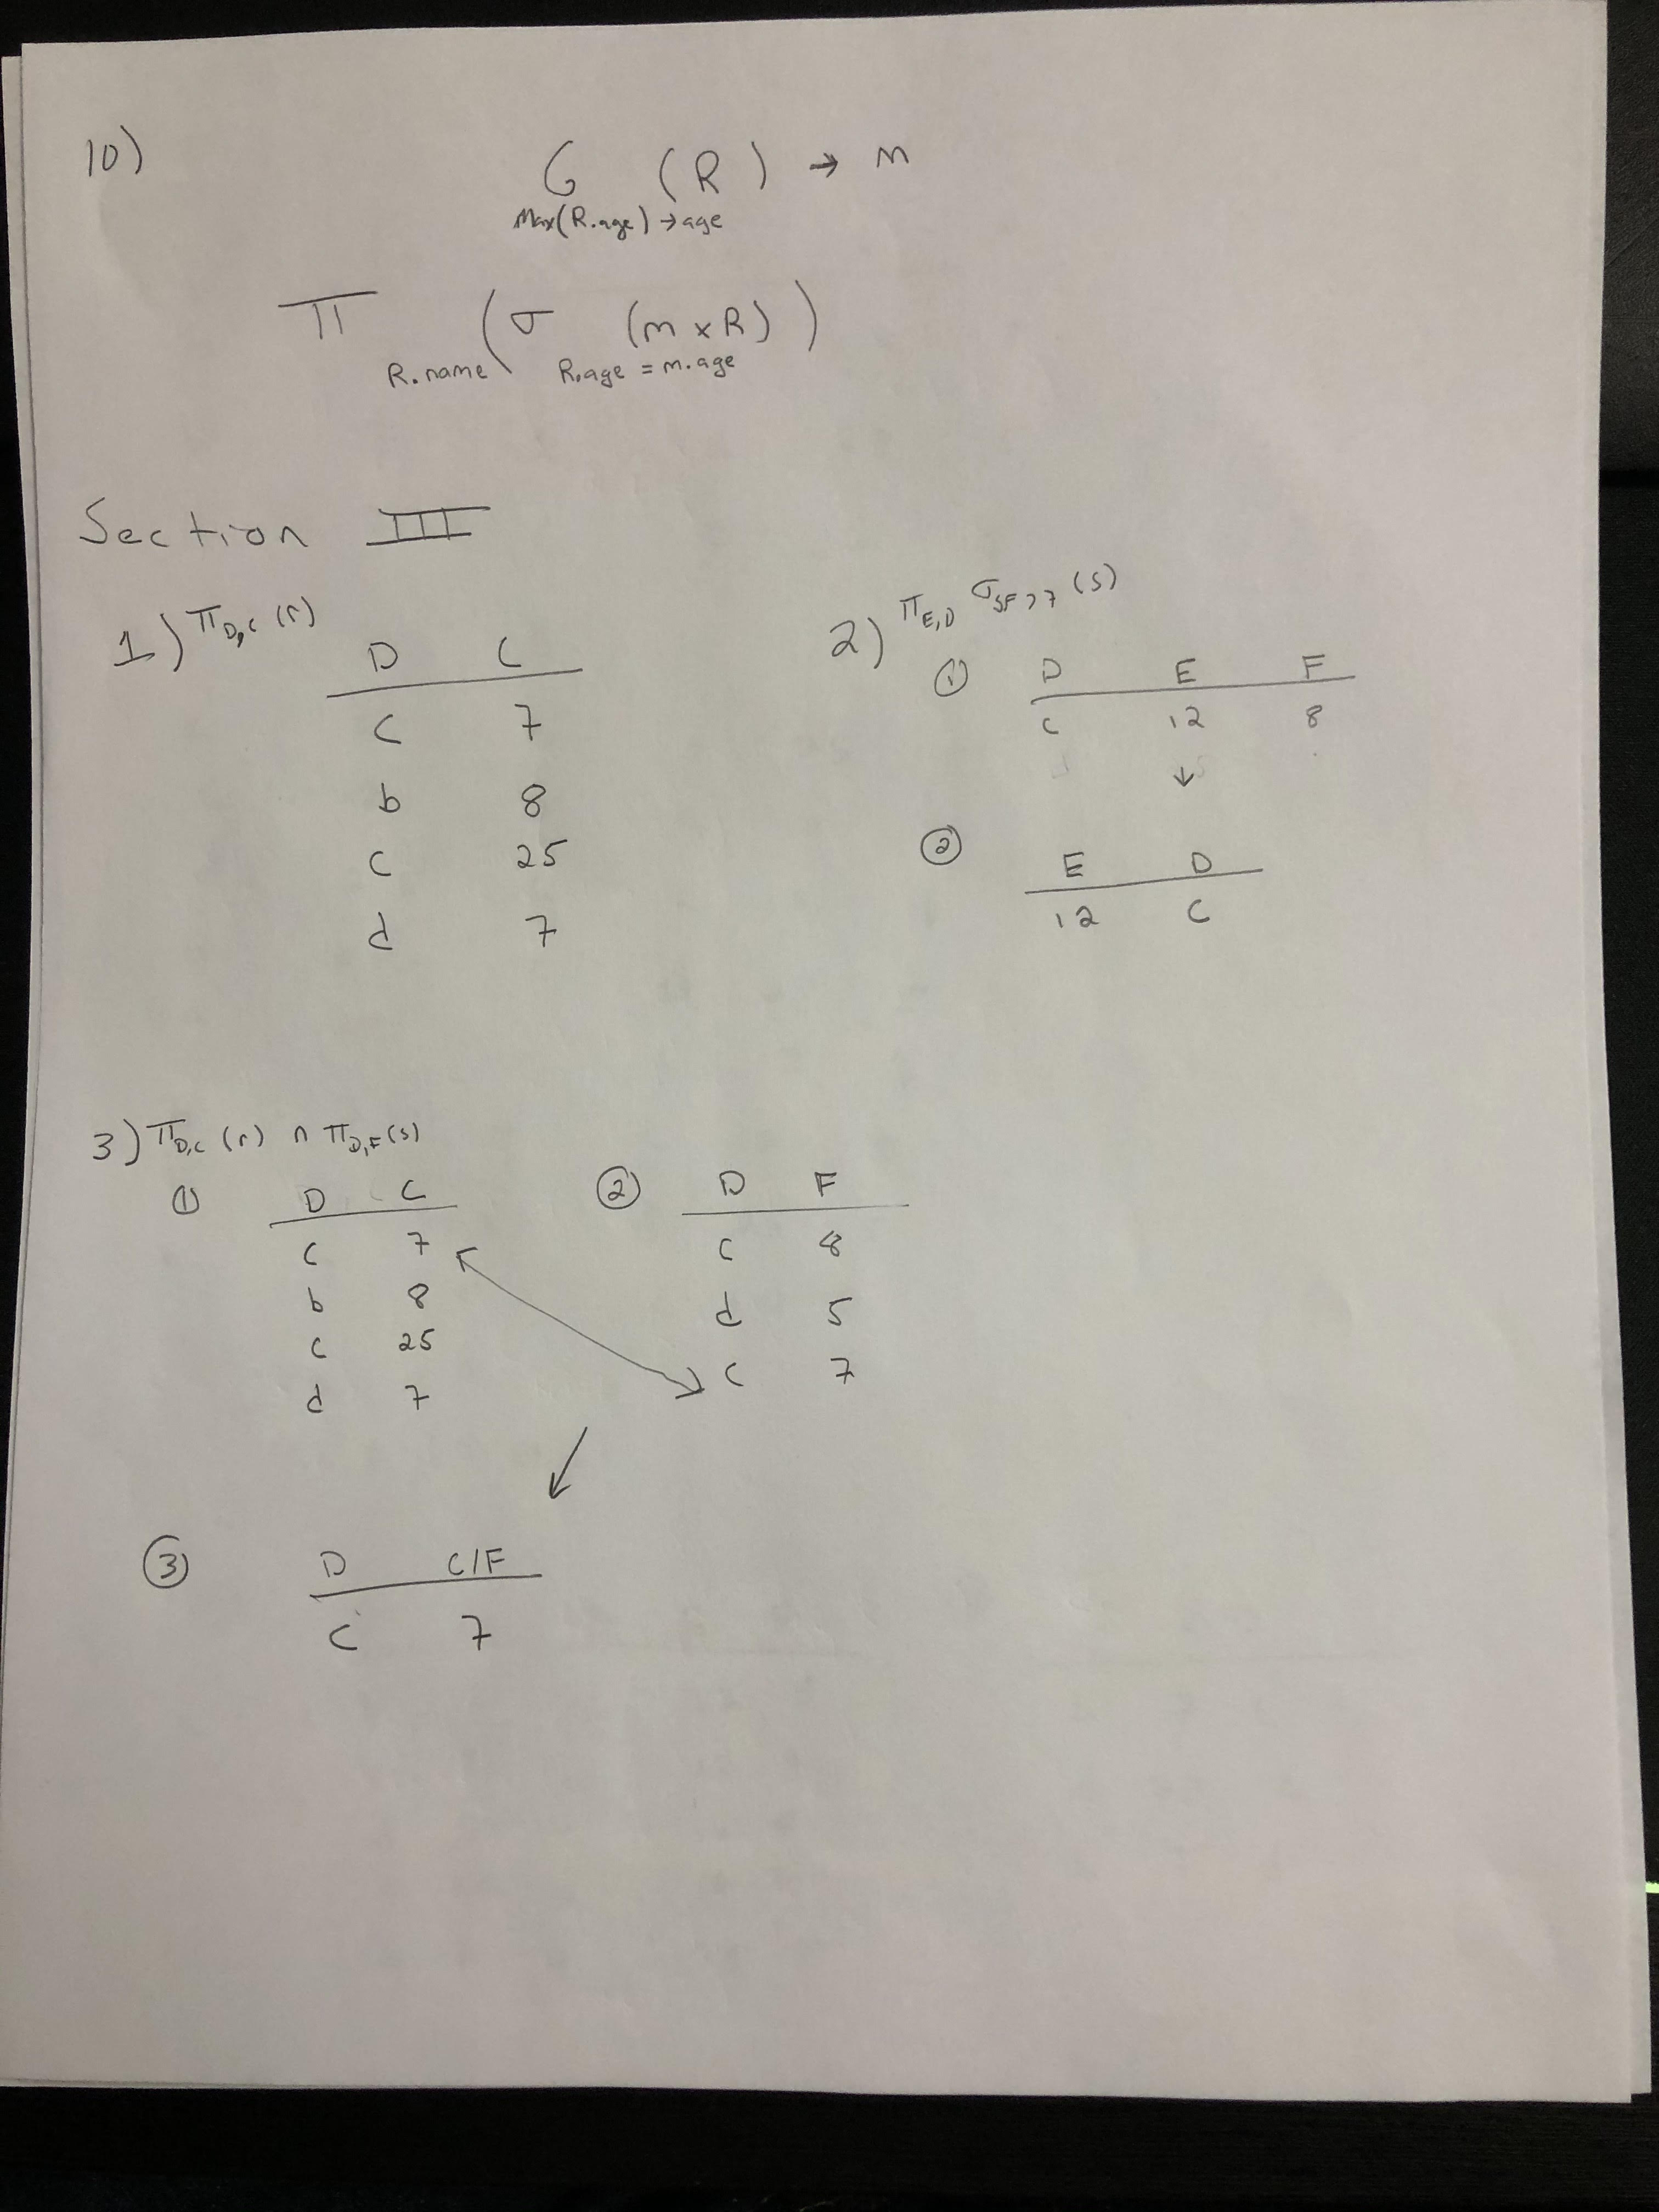 10)
G (R) → m
Max(R.age) → age
π (σ (m × R))
R.name R.age = m.age
Section III
1) π D,C (r)
D C
C 7
b 8
C 25
d 7
2) π E,D σ S.F > 7 (s)
① D E F
C 12 8
↓
② E D
12 C
3) π D,C (r) ∩ π D,F (s)
① D C
C 7
b 8
C 25
d 7
② D F
C 8
d 5
C 7
③ D C/F
C 7